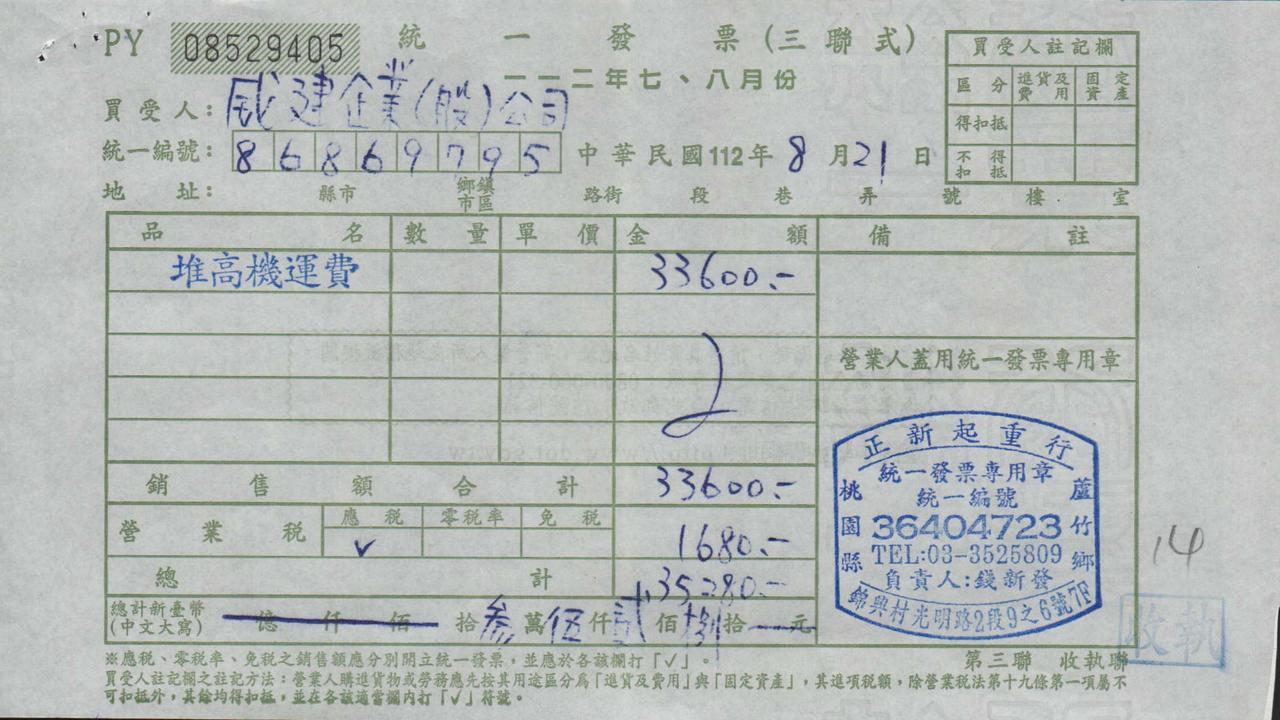 PY 08529405 統一發票(三聯式)
一一二年七、八月份
買受人註記欄
區分 進貨及費用 固定資產
得扣抵
不得扣抵
買受人: 威建企業(股)公司
統一編號: 86869795 中華民國112年8月21日
地址: 縣市 鄉鎮市區 路街 段 巷 弄 號 樓 室
品名 數量 單價 金額 備註
堆高機運費 33600.-
營業人蓋用統一發票專用章
銷售額合計 33600.-
營業稅 應稅 零稅率 免稅
✓ 1680.-
總計 35280.-
總計新臺幣(中文大寫) 億 仟 佰 拾 參 萬 伍 仟 貳 佰 捌 拾 元
正新起重行
統一發票專用章
統一編號
36404723
TEL:03-3525809
負責人:錢新發
桃園縣 蘆竹鄉
錦興村光明路2段9之6號7F
14
收執
※應稅、零稅率、免稅之銷售額應分別開立統一發票,並應於各該欄打「✓」。
第三聯 收執聯
買受人註記欄之註記方法:營業人購進貨物或勞務應先按其用途區分為「進貨及費用」與「固定資產」,其進項稅額,除營業稅法第十九條第一項屬不
可扣抵外,其餘均得扣抵,並在各該適當欄內打「✓」符號。